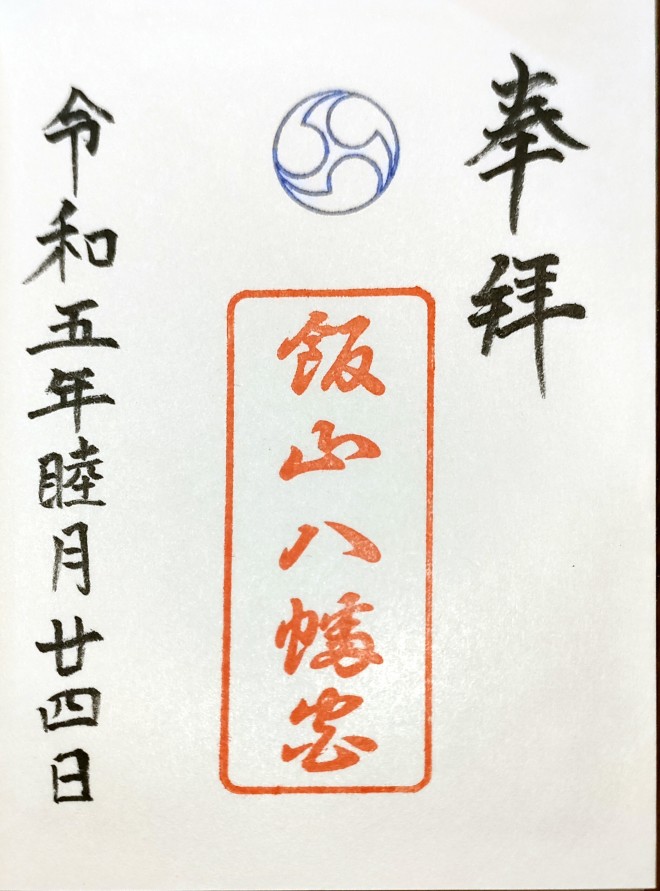 奉拝
飯山八幡宮
令和五年睦月廿四日